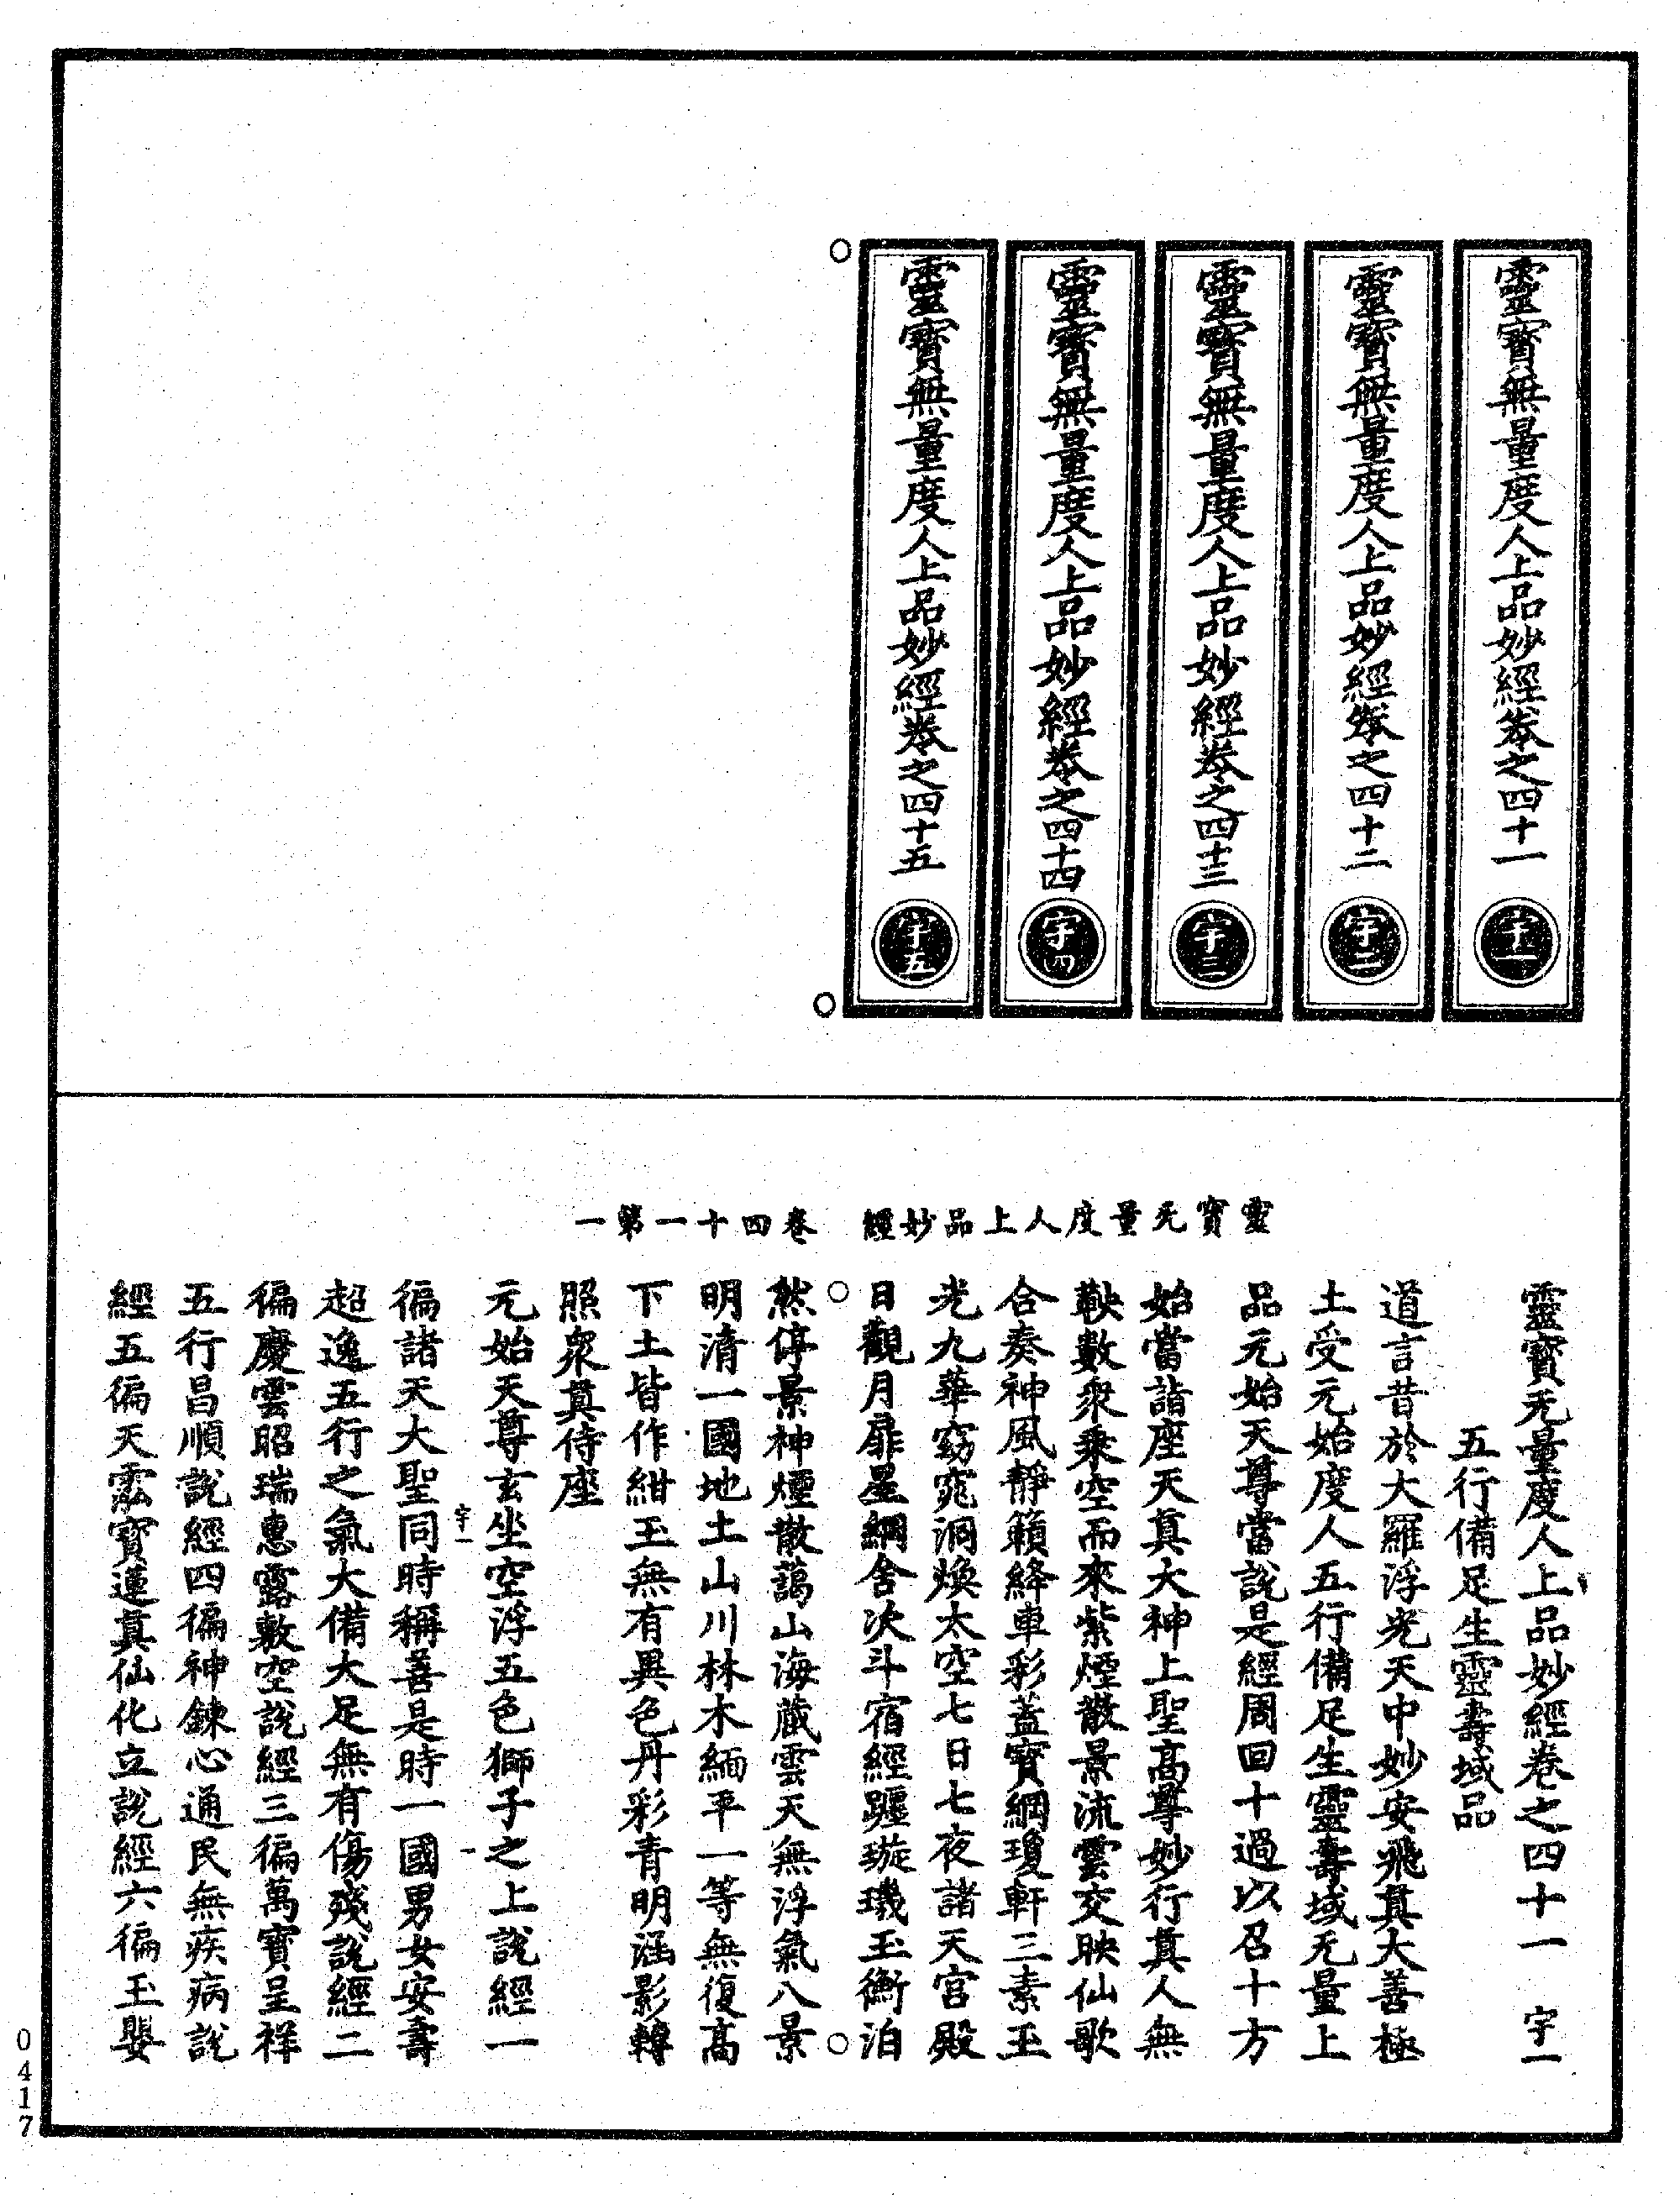 靈寶無量度人上品妙經卷之四十一
宇一
靈寶無量度人上品妙經卷之四十二
宇二
靈寶無量度人上品妙經卷之四十三
宇三
靈寶無量度人上品妙經卷之四十四
宇四
靈寶無量度人上品妙經卷之四十五
宇五
靈寶无量度人上品妙經　卷四十一第一
靈寶无量度人上品妙經卷之四十一　宇一
五行備足生靈壽域品
道言昔於大羅浮光天中妙安飛真大善極
土受元始度人五行備足生靈壽域无量上
品元始天尊當說是經周回十過以召十方
始當詣座天真大神上聖高尊妙行真人無
鞅數衆乘空而來紫煙散景流雲交映仙歌
合奏神風靜籟絳車彩蓋寶網瓊軒三素玉
光九華窈窕洞煥太空七日七夜諸天宮殿
日觀月扉星網舍次斗宿經躔璇璣玉衡泊
然停景神煙散藹山海藏雲天無浮氣八景
明清一國地土山川林木緬平一等無復高
下土皆作紺玉無有異色丹彩青明涵影轉
照衆真侍座
元始天尊玄坐空浮五色獅子之上說經一
宇一
一
徧諸天大聖同時稱善是時一國男女安壽
超逸五行之氣大備大足無有傷殘說經二
徧慶雲昭瑞惠露敷空說經三徧萬寶呈祥
五行昌順說經四徧神鍊心通民無疾病說
經五徧天霐寶蓮真仙化立說經六徧玉嬰
0417